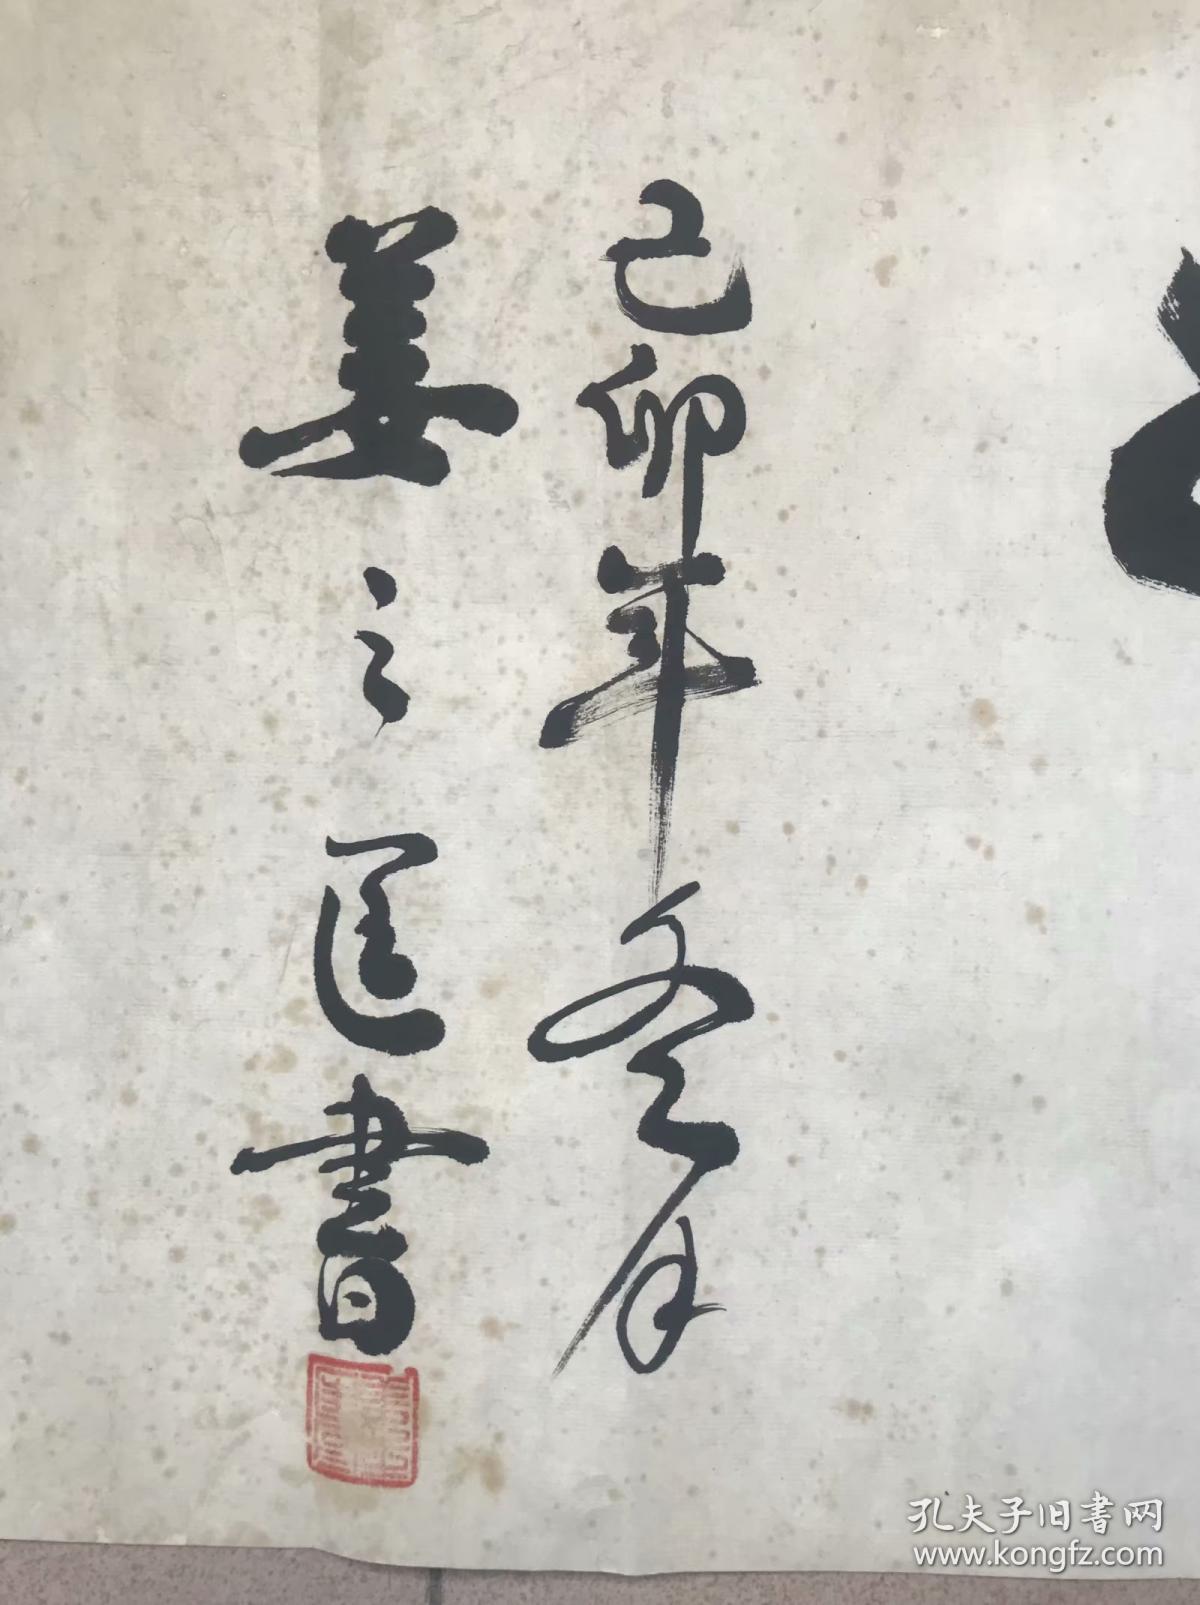 己卯年冬月
姜之匡書
孔夫子旧书网
www.kongfz.com